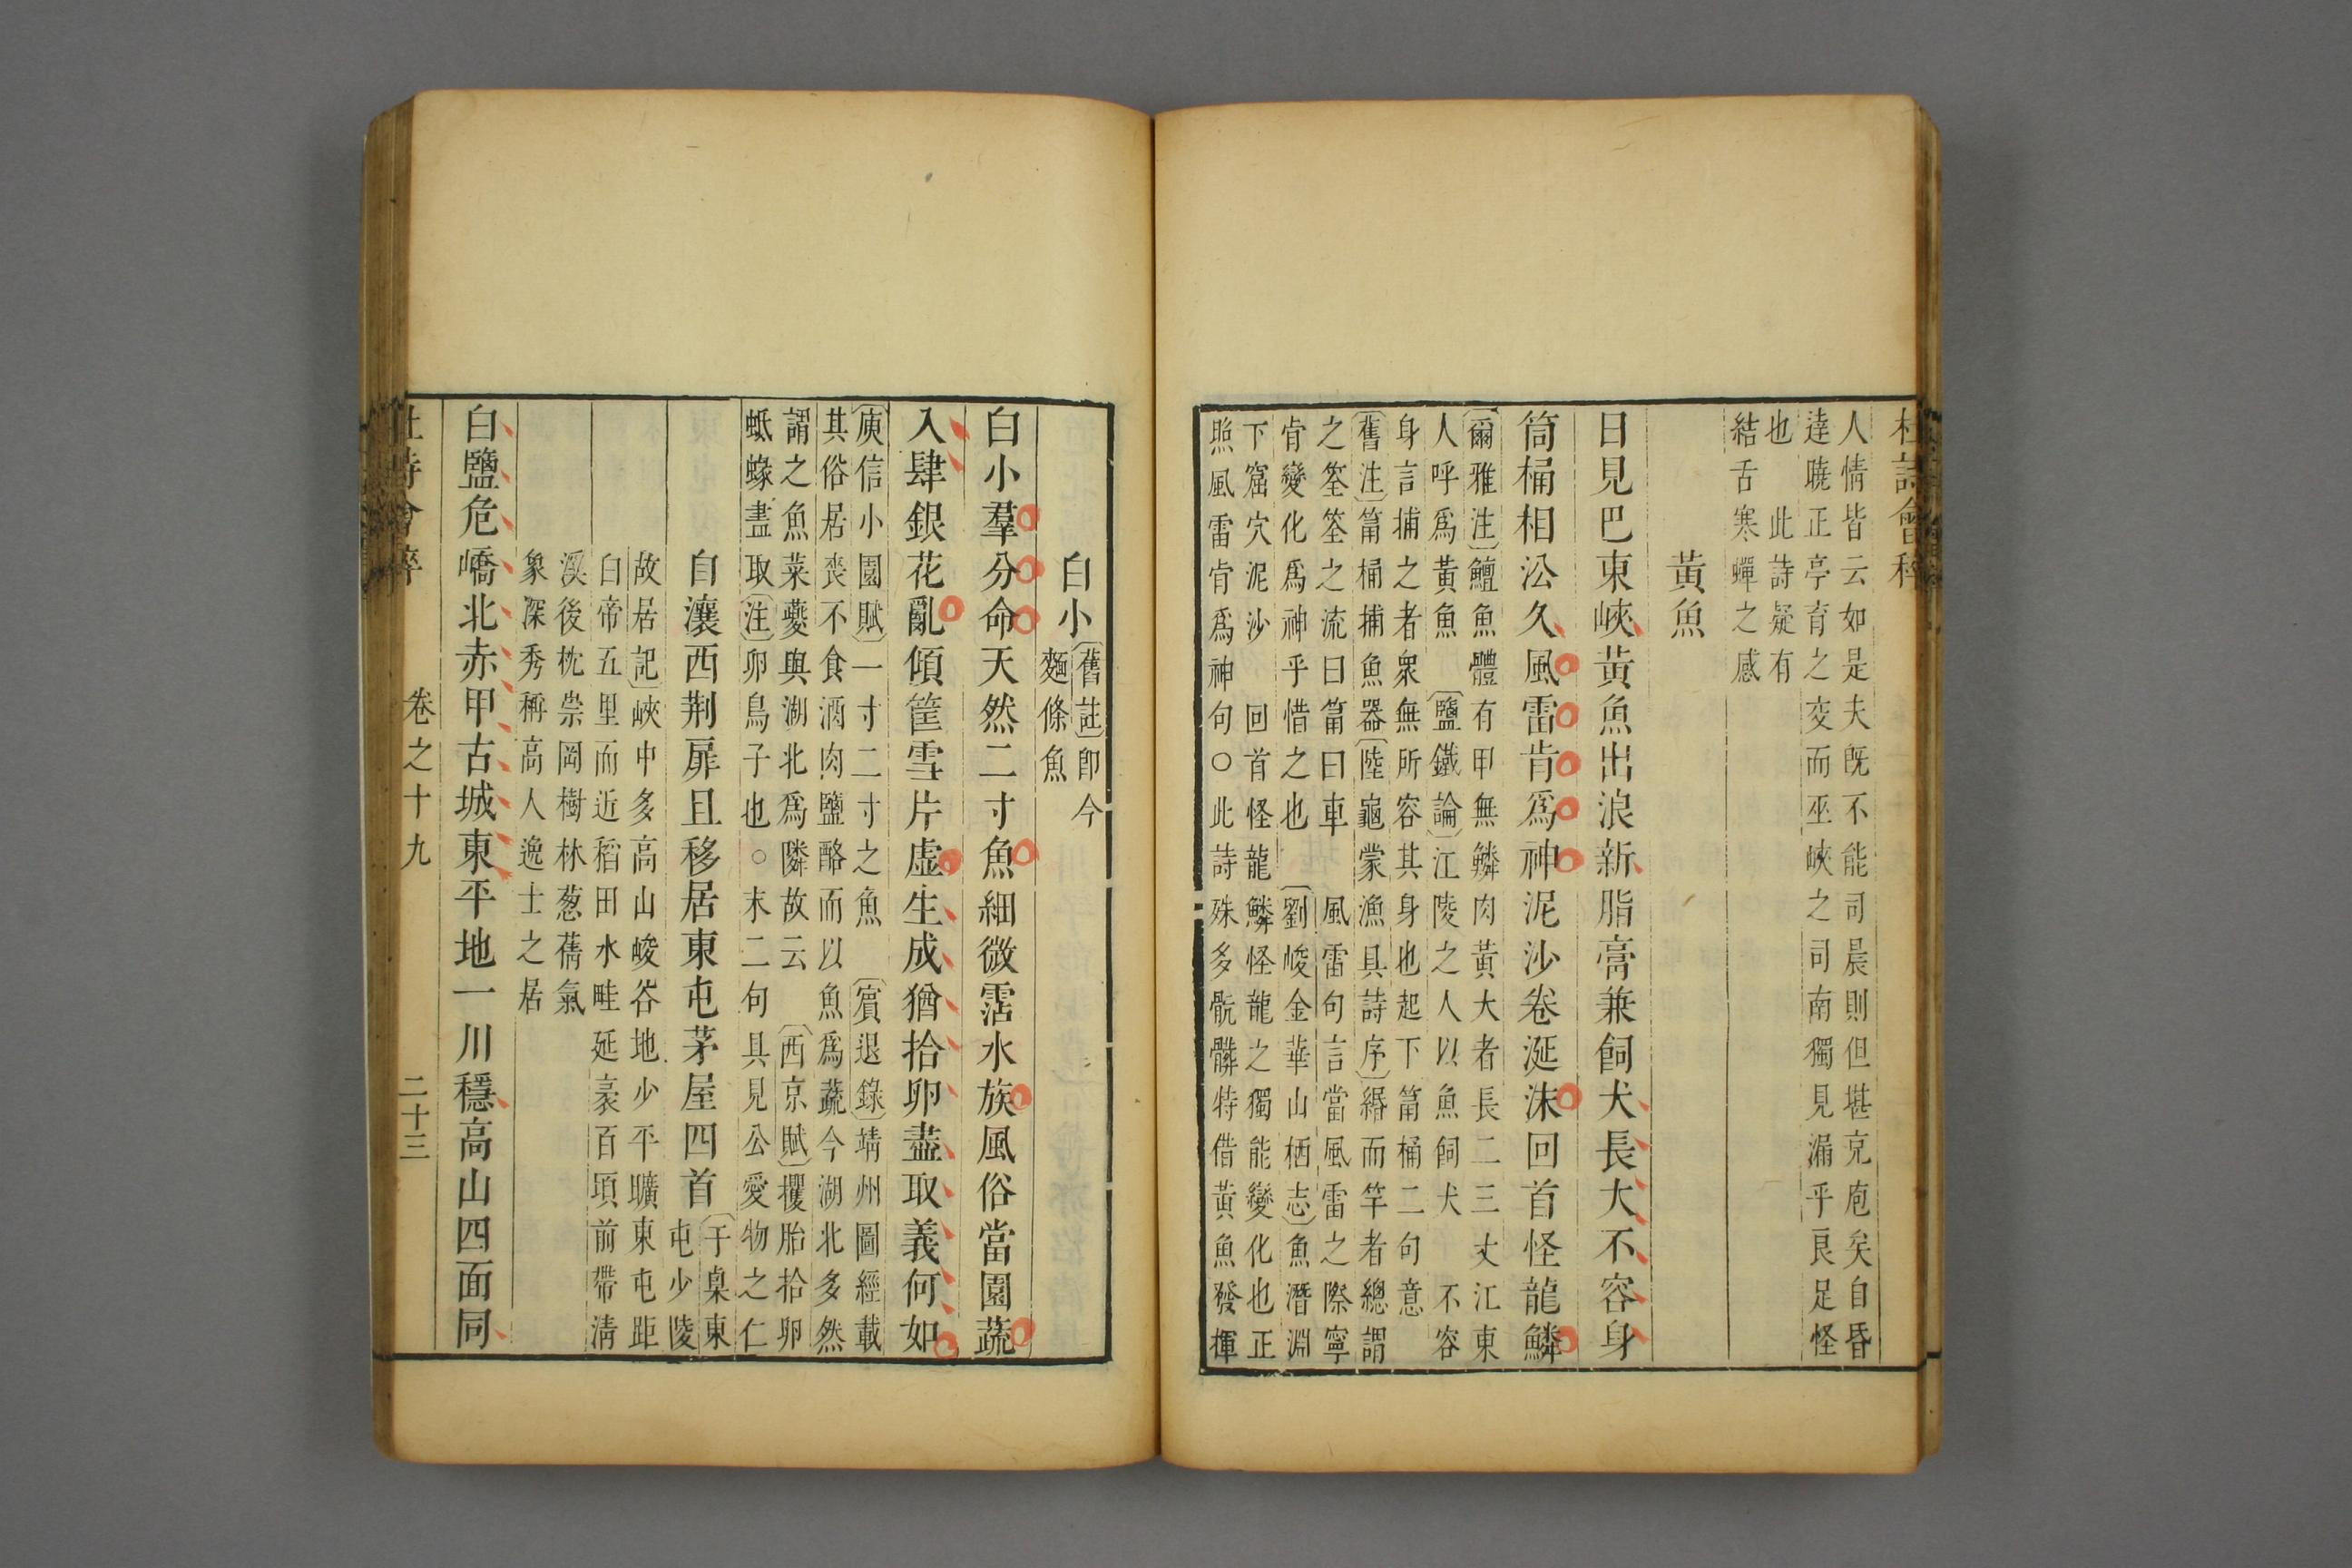 杜詩會稡
人情皆云如是夫既不能司晨則但堪充庖矣自昏
逹曉正亭育之変而巫峽之司南獨見漏乎良足怪
也 此詩疑有
結舌寒蟬之感
黃魚
日見巴東峽黃魚出浪新脂膏兼飼犬長大不容身
筒桶相沿久風雷肯爲神泥沙卷涎沫回首怪龍鱗
爾雅注鱣魚體有甲無鱗肉黃大者長二三丈江東
人呼爲黃魚 鹽鐵論江陵之人以魚飼犬 不容
身言捕之者衆無所容其身也起下筩桶二句意
舊注筩桶捕魚器陸龜蒙漁具詩序緡而竿者總謂
之筌筌之流曰筩曰車 風雷句言當風雷之際寧
肯變化爲神乎惜之也 劉峻金華山栖志魚潛淵
下窟穴泥沙 回首怪龍鱗怪龍之獨能變化也正
照風雷肯爲神句○此詩殊多骯髒特借黃魚發揮
白小 舊註卽今
麵條魚
白小羣分命天然二寸魚細微霑水族風俗當園蔬
入肆銀花亂傾筐雪片虛生成猶拾卵盡取義何如
庾信小園賦一寸二寸之魚 賓退錄靖州圖經載
其俗居喪不食酒肉鹽酪而以魚爲蔬今湖北多然
謂之魚菜夔與湖北爲隣故云 西京賦攫胎拾卵
蚳蝝盡取注卵鳥子也○末二句具見公愛物之仁
自瀼西荆扉且移居東屯茅屋四首 于㮚東
屯少陵
故居記峽中多高山峻谷地少平曠東屯距
白帝五里而近稻田水畦延袤百頃前帶清
溪後枕崇岡樹林葱蒨氣
象深秀稱高人逸士之居
白鹽危嶠北赤甲古城東平地一川穩高山四面同
杜詩會稡 卷之十九 二十三